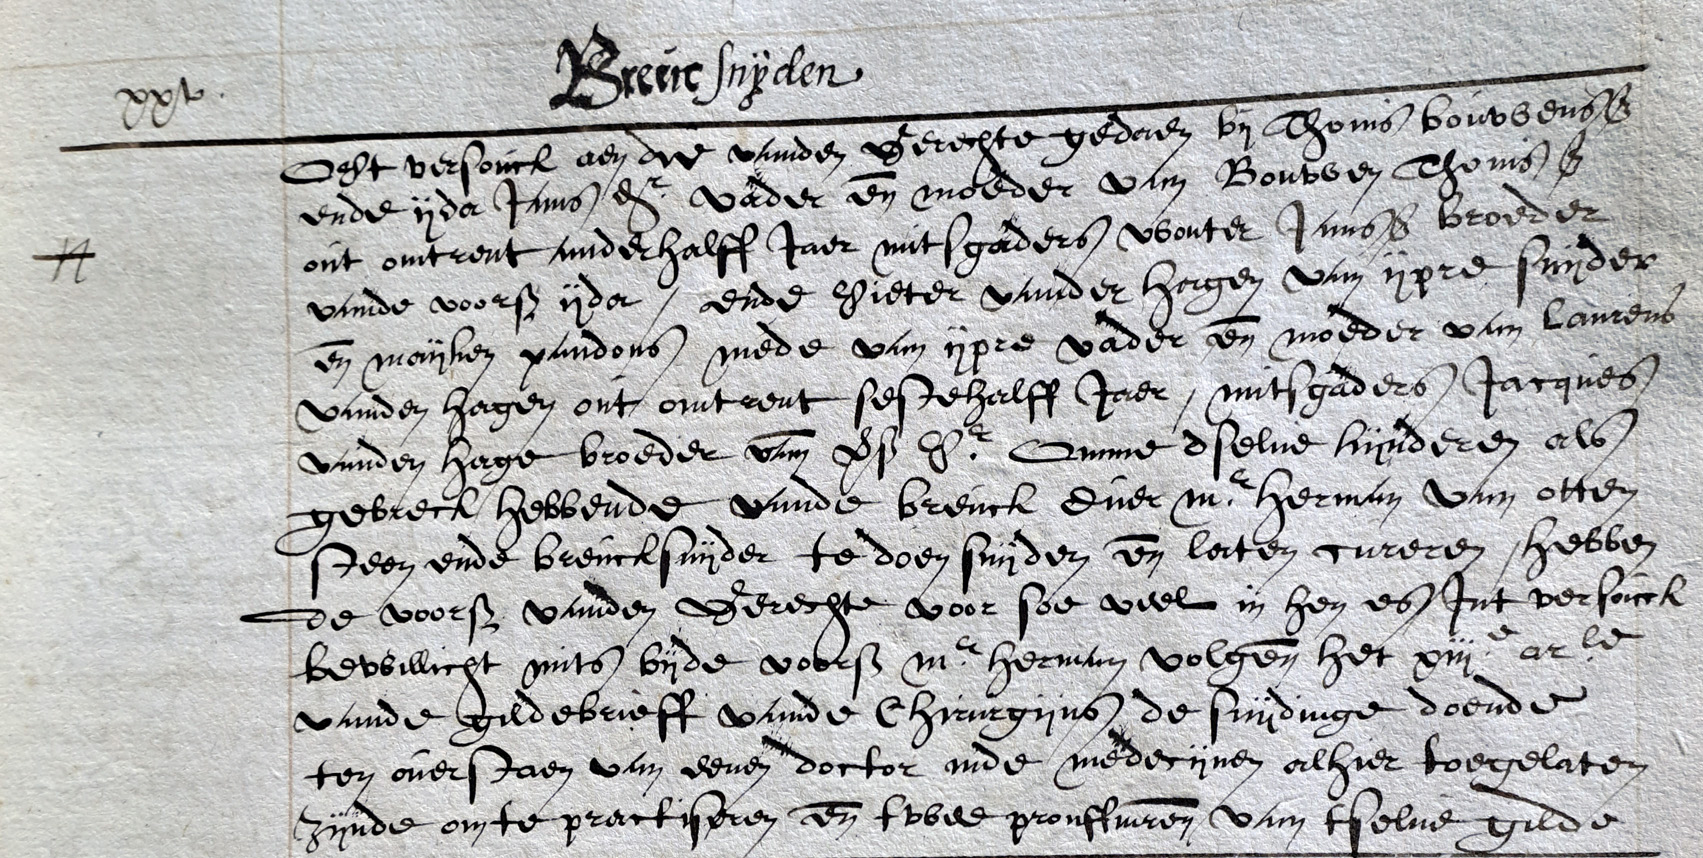 xxv.
Breuc snijden
Opt versouck aen die vanden Gerechte gedaen bij Thonis bouwens
ende ijda Jans dr. vader en moeder van Bouwen Thonis
out omtrent anderhalff Jaer mitsgaders wouter Jans broeder
vande voors ijda, ende Pieter vander hagen van ijpre snijder
en maijken pandons mede van ijpre vader en moeder van Laurens
vanden hagen out omtrent sestehalff Jaer, mitsgaders Jacques
vanden hage broeder van Omme dselve kijnderen als
gebreck hebbende vande breuck duer mr. herman van otten
steen ende breucksnijder te doen snijden en laten cureren, hebben
De voors vanden Gerechte voor soe veel in hen es Jnt versouck
bewillicht mits bijde voors mr. herman volgen het xiije arle
vande gildebrieff vande Chirurgijns de snijdinge doende
ten overstaen van eenen doctor inde medecijnen alhier toegelaten
zijnde omte practiseren en twee prouffmren van tselve gilde